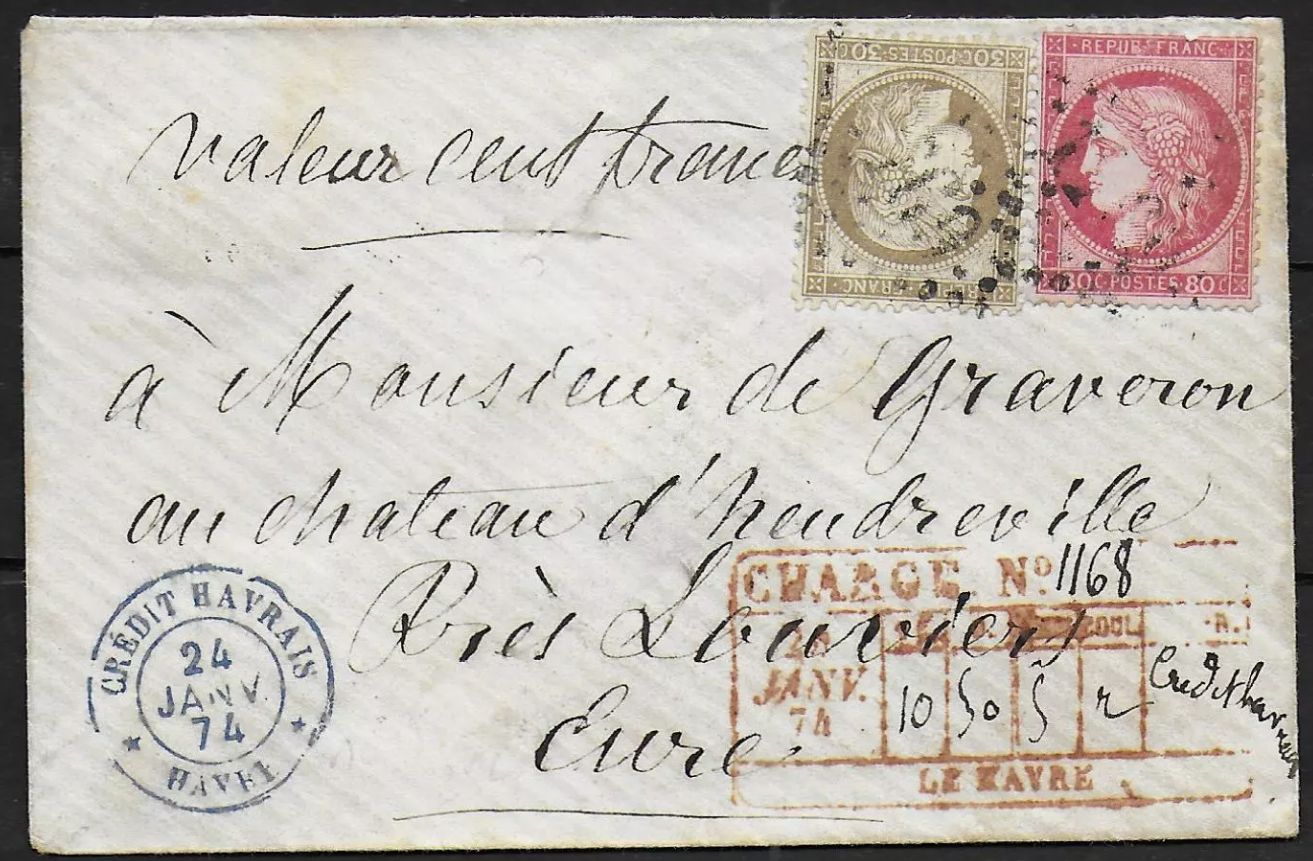 valeur cent francs
30 C. POSTES 30 C
REPUB. FRANC.
80 C. POSTES 80 C
à Monsieur de Graveron
au chateau d'heudreville
Près Louviers
Eure
CRÉDIT HAVRAIS
24
JANV.
74
HAVRE
CHARGE. No. 1168
JANV.
74
10 50 5 2
Credit havrais
LE HAVRE